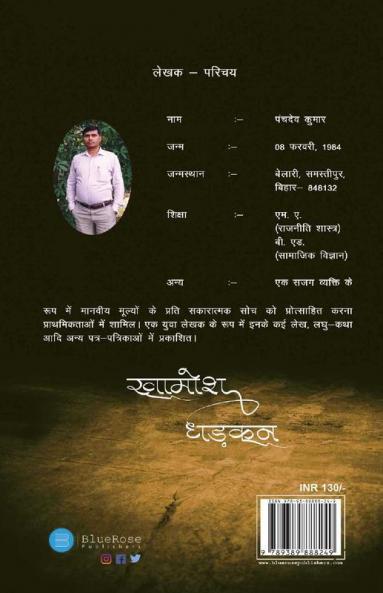 लेखक – परिचय
नाम :– पंचदेव कुमार
जन्म :– 08 फरवरी, 1984
जन्मस्थान :– बेलारी, समस्तीपुर,
बिहार– 848132
शिक्षा :– एम. ए.
(राजनीति शास्त्र)
बी. एड.
(सामाजिक विज्ञान)
अन्य :– एक सजग व्यक्ति के
रूप में मानवीय मूल्यों के प्रति सकारात्मक सोच को प्रोत्साहित करना
प्राथमिकताओं में शामिल। एक युवा लेखक के रूप में इनके कई लेख, लघु–कथा
आदि अन्य पत्र–पत्रिकाओं में प्रकाशित।
खामोश
धड़कन
INR 130/-
9 789389 888249
www.bluerosepublishers.com
B BlueRose
Publishers